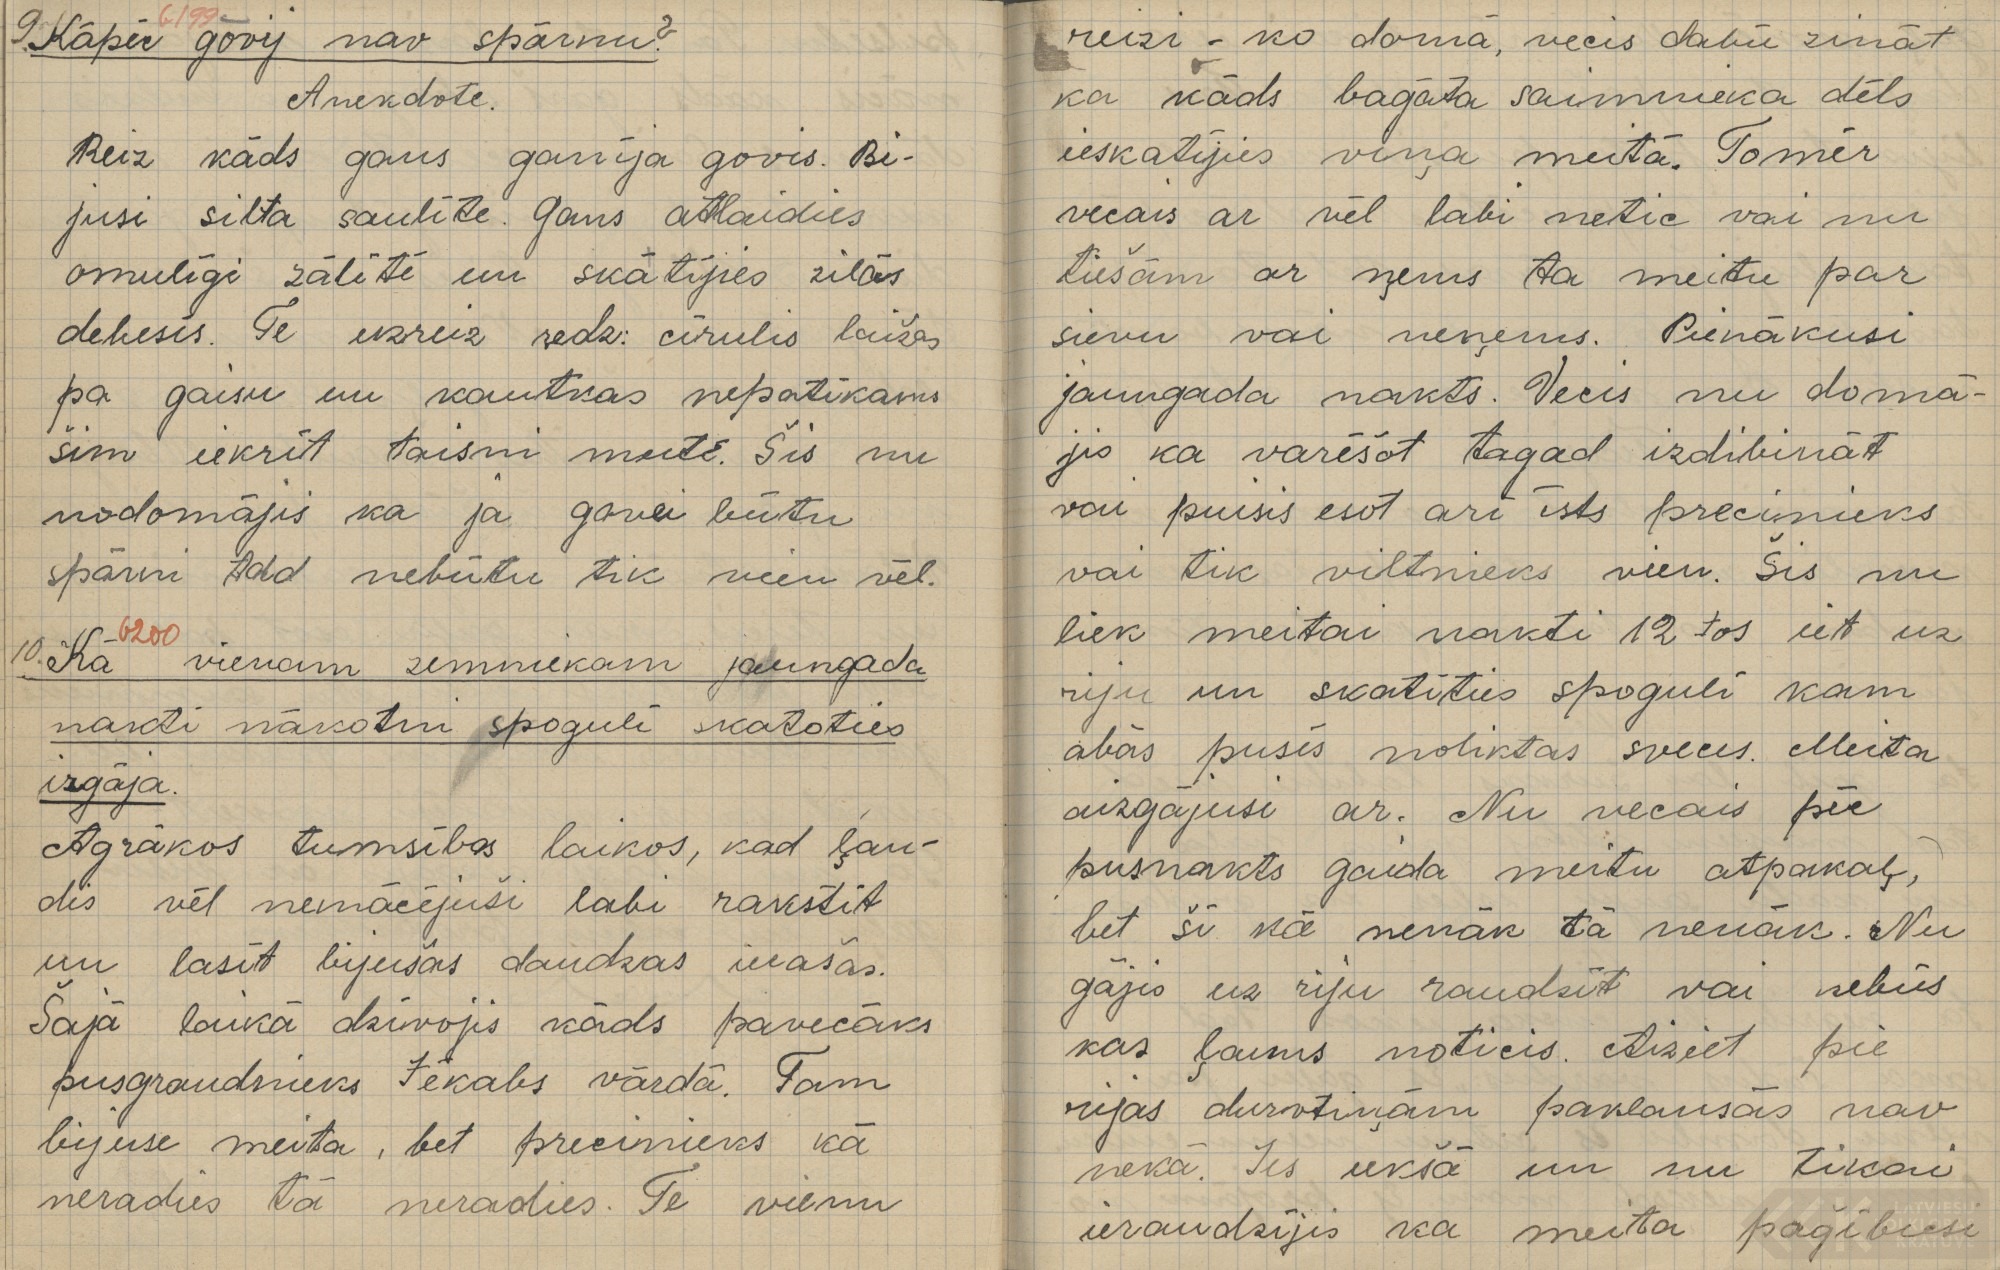 6199
9. Kāpēc govij nav spārnu?
Anekdote.
Reiz kāds gans ganīja govis. Bi-
jusi silta saulīte. Gans atlaidies
omulīgi zālītē un skatījies zilās
debesīs. Te uzreiz redz: cīrulis laižas
pa gaisu un kautkas nepatīkams
šim iekrīt taisni mutē. Šis nu
nodomājis ka ja govei būtu
spārni tad nebūtu tik vien vēl.
6200
10. Kā vienam zemniekam jaungada
naktī nākotni spogulī skatoties
izgāja.
Agrākos tumsības laikos, kad ļau-
dis vēl nemācējuši labi rakstīt
un lasīt bijušas daudzas ierašas.
Šajā laikā dzīvojis kāds pavecāks
pusgraudnieks Jēkabs vārdā. Tam
bijuse meita, bet precinieks kā
neradies tā neradies. Te vienu
reizi - ko domā, vecis dabū zināt
ka kāds bagāta saimnieka dēls
ieskatījies viņa meitā. Tomēr
vecais ar vēl labi netic vai nu
tiešām ar ņems ta meitu par
sievu vai neņems. Pienākusi
jaungada nakts. Vecis nu domā-
jis ka varēšot tagad izdibināt
vai puisis esot arī īsts precinieks
vai tik viltnieks vien. Šis nu
liek meitai naktī 12 tos iet uz
riju un skatīties spogulī kam
abās pusēs noliktas sveces. Meita
aizgājusi ar. Nu vecais pēc
pusnakts gaida meitu atpakaļ,
bet šī kā nenāk tā nenāk. Nu
gājis uz riju raudzīt vai nebūs
kas ļauns noticis. Aiziet pie
rijas durvtiņām paklausās nav
nekā. Ies iekšā un nu tikai
ieraudzījis ka meita paģībusi